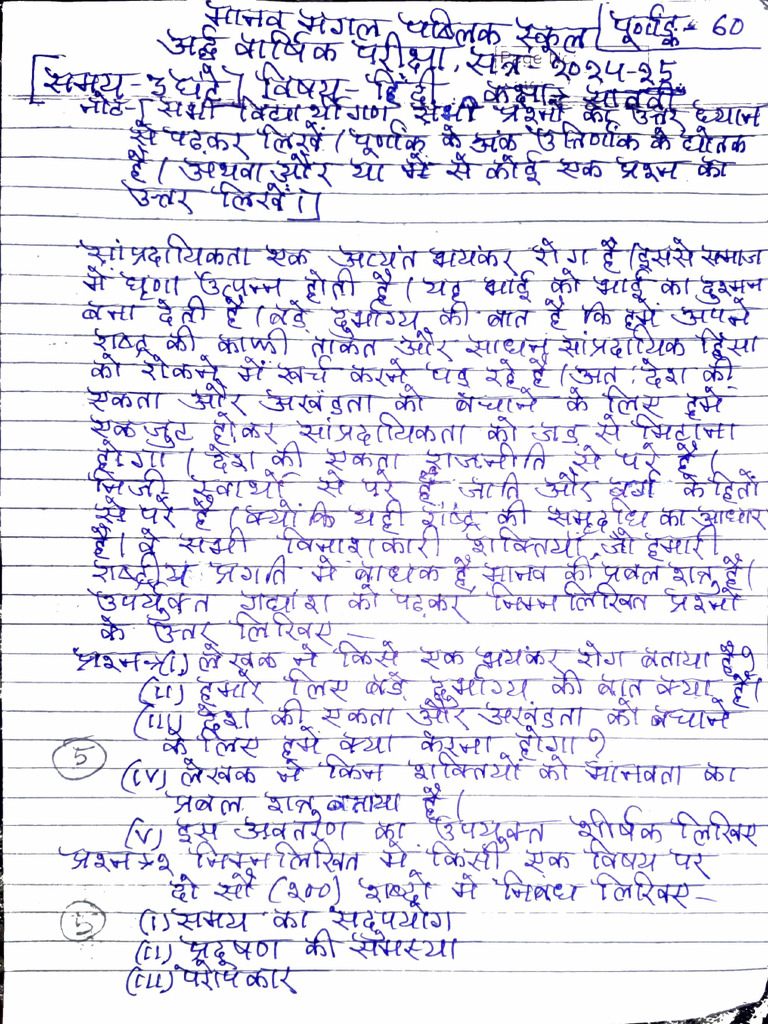 मानव मंगल पब्लिक स्कूल [पूर्णांक - 60
अर्द्ध वार्षिक परीक्षा, सत्र २०२४-२५
[समय-३ घंटे] विषय- हिंदी कक्षा आठवीं
नोट-[सभी विद्यार्थीगण सभी प्रश्नों का उत्तर ध्यान
से पढ़कर लिखें। पूर्णांक के अंक उत्तिर्णांक के द्योतक
हैं। अथवा और या में से कोई एक प्रश्न का
उत्तर लिखें।]
सांप्रदायिकता एक अत्यंत भयंकर रोग है। इससे समाज
में घृणा उत्पन्न होती है। यह भाई को भाई का दुश्मन
बना देती है। बड़े दुर्भाग्य की बात है कि हमें अपने
राष्ट्र की काफी ताकत और साधन सांप्रदायिक हिंसा
को रोकने में खर्च करने पड़ रहे हैं। अत: देश की
एकता और अखंडता को बचाने के लिए हमें
एक जुट होकर सांप्रदायिकता को जड़ से मिटाना
होगा। देश की एकता राजनीति से परे है।
निजी स्वार्थों से परे है, जाति और वर्ग के हितों
से परे है। क्योंकि यही राष्ट्र की समृद्धि का आधार
है। वे सभी विनाशकारी शक्तियाँ जो हमारी
राष्ट्रीय प्रगति में बाधक है, मानव की प्रबल शत्रु है।
उपर्युक्त गद्यांश को पढ़कर निम्नलिखित प्रश्नों
के उत्तर लिखिए –
प्रश्न१(i) लेखक ने किसे एक भयंकर रोग बताया है?
(ii) हमारे लिए बड़े दुर्भाग्य की बात क्या है।
(iii) देश की एकता और अखंडता को बचाने
के लिए हमें क्या करना होगा?
5
(iv) लेखक ने किन शक्तियों को मानवता का
प्रबल शत्रु बताया है।
(v) इस अवतरण का उपयुक्त शीर्षक लिखिए
प्रश्न२ निम्नलिखित में किसी एक विषय पर
दो सौ (२००) शब्दों में निबंध लिखिए –
5 (i) समय का सदुपयोग
(ii) प्रदूषण की समस्या
(iii) परोपकार